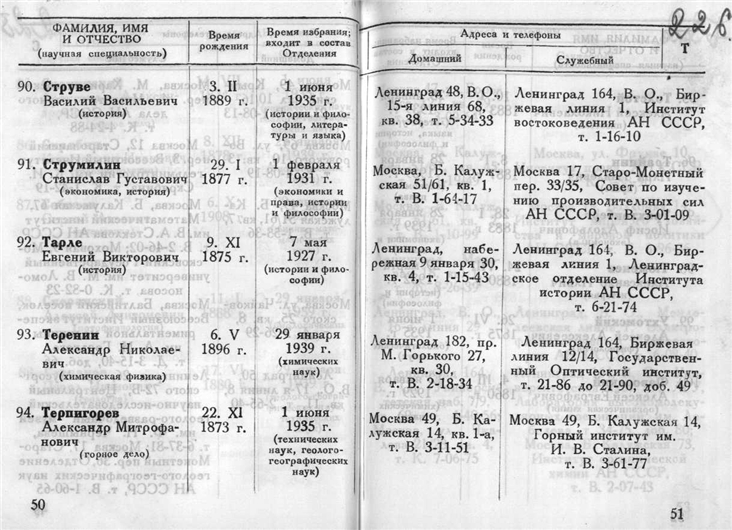 ФАМИЛИЯ, ИМЯ
И ОТЧЕСТВО
(научная специальность)
Время
рождения
Время избрания;
входит в состав
Отделения
90. Струве
Василий Васильевич
(история)
3. II
1889 г.
1 июня
1935 г.
(истории и фило-
софии, литера-
туры и языка)
91. Струмилин
Станислав Густавович
(экономика, история)
29. I
1877 г.
1 февраля
1931 г.
(экономики и
права, истории
и философии)
92. Тарле
Евгений Викторович
(история)
9. XI
1875 г.
7 мая
1927 г.
(истории и фило-
софии)
93. Теренин
Александр Николае-
вич
(химическая физика)
6. V
1896 г.
29 января
1939 г.
(химических
наук)
94. Терпигорев
Александр Митрофа-
нович
(горное дело)
22. XI
1873 г.
1 июня
1935 г.
(технических
наук, геолого-
географических
наук)
50
226.
Адреса и телефоны
Т
Домашний
Служебный
Ленинград 48, В. О.,
15-я линия 68,
кв. 38, т. 5-34-33
Ленинград 164, В. О., Бир-
жевая линия 1, Институт
востоковедения АН СССР,
т. 1-16-10
Москва, Б. Калуж-
ская 51/61, кв. 1,
т. В. 1-64-17
Москва 17, Старо-Монетный
пер. 33/35, Совет по изуче-
нию производительных сил
АН СССР, т. В. 3-01-09
Ленинград, набе-
режная 9 января 30,
кв. 4, т. 1-15-43
Ленинград 164, В. О., Бир-
жевая линия 1, Ленинград-
ское отделение Института
истории АН СССР,
т. 6-21-74
Ленинград 182, пр.
М. Горького 27,
кв. 30,
т. В. 2-18-34
Ленинград 164, Биржевая
линия 12/14, Государствен-
ный Оптический институт,
т. 21-86 до 21-90, доб. 49
Москва 49, Б. Ка-
лужская 14, кв. 1-а,
т. В. 3-11-51
Москва 49, Б. Калужская 14,
Горный институт им.
И. В. Сталина,
т. В. 3-61-77
51